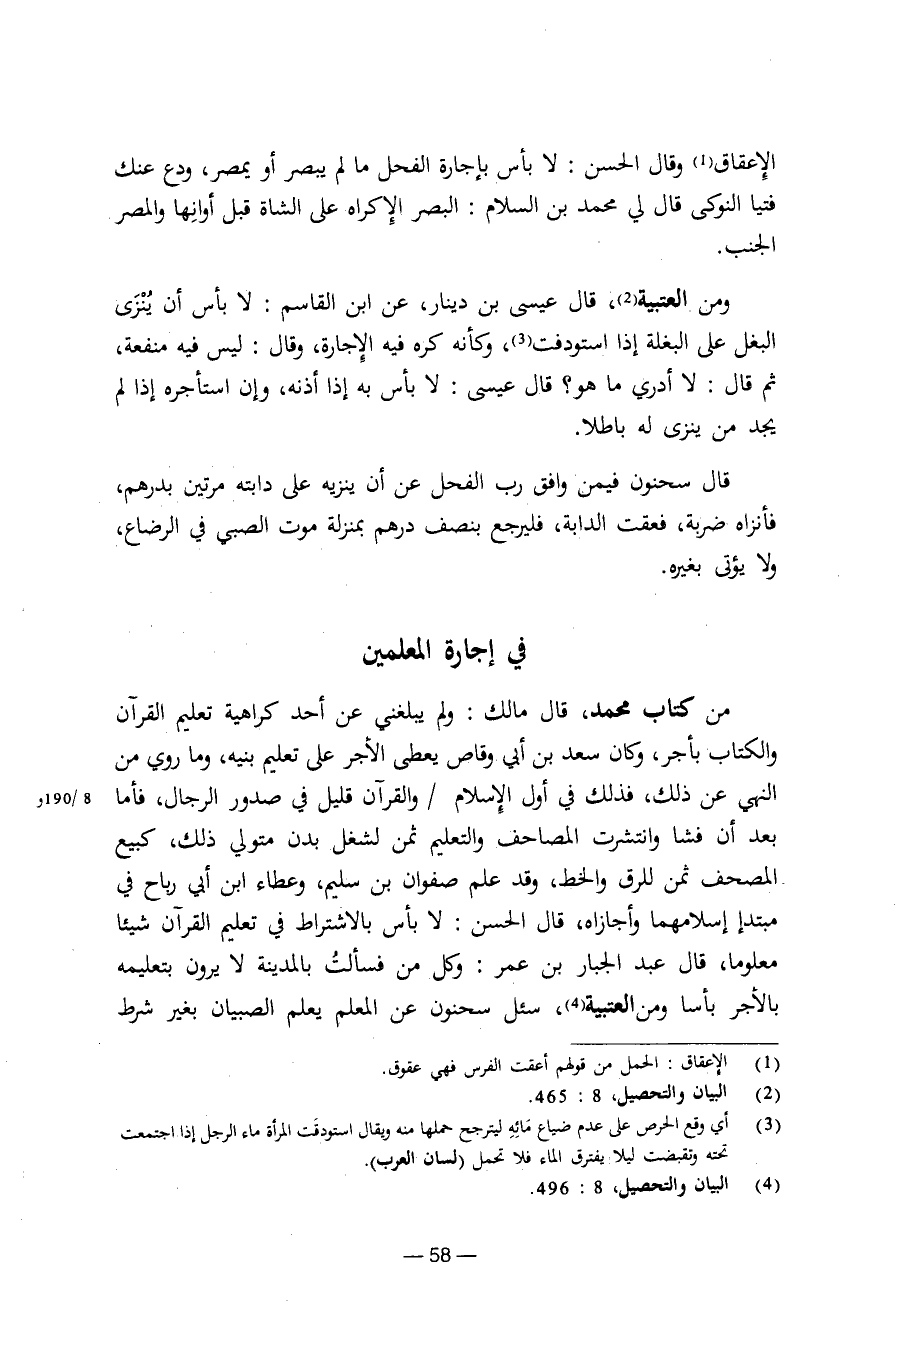 الإعقاق(1) وقال الحسن : لا بأس بإجارة الفحل ما لم يبصر أو يمصر، ودع عنك
فتيا النوكى قال لي محمد بن السلام : البصر الإكراه على الشاة قبل أوانِها والمصر
الجنب.
ومن العتبية(2)، قال عيسى بن دينار، عن ابن القاسم : لا بأس أن يُنْزَى
البغل على البغلة إذا استودفت(3)، وكأنه كره فيه الإجارة، وقال : ليس فيه منفعة،
ثم قال : لا أدري ما هو؟ قال عيسى : لا بأس به إذا أذنه، وإن استأجره إذا لم
يجد من ينزى له باطلا.
قال سحنون فيمن وافق رب الفحل عن أن ينزيه على دابته مرتين بدرهم،
فأنزاه ضربة، فعقت الدابة، فليرجع بنصف درهم بمنزلة موت الصبي في الرضاع،
ولا يؤتى بغيره.
في إجارة المعلمين
من كتاب محمد، قال مالك : ولم يبلغني عن أحد كراهية تعليم القرآن
والكتاب بأجر، وكان سعد بن أبي وقاص يعطى الأجر على تعليم بنيه، وما روي من
النهي عن ذلك، فذلك في أول الإسلام / والقرآن قليل في صدور الرجال، فأما 8 /190و
بعد أن فشا وانتشرت المصاحف والتعليم ثمن لشغل بدن متولي ذلك، كبيع
المصحف ثمن للرق والخط، وقد علم صفوان بن سليم، وعطاء ابن أبي رباح في
مبتدإ إسلامهما وأجازاه، قال الحسن : لا بأس بالاشتراط في تعليم القرآن شيئا
معلوما، قال عبد الجبار بن عمر : وكل من فسألتُ بالمدينة لا يرون بتعليمه
بالأجر بأسا ومن العتبية(4)، سئل سحنون عن المعلم يعلم الصبيان بغير شرط
(1) الإعقاق : الحمل من قولهم أعقت الفرس فهي عقوق.
(2) البيان والتحصيل، 8 : 465.
(3) أي وقع الحرص على عدم ضياع مَائِهِ ليترجح حملها منه ويقال استودقَت المرأة ماء الرجل إذا اجتمعت
تحته وتقبضت ليلا يفترق الماء فلا تحمل (لسان العرب).
(4) البيان والتحصيل، 8 : 496.
— 58 —